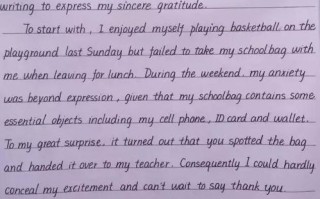 writing to express my sincere gratitude.
To start with, I enjoyed myself playing basketball on the
playground last Sunday but failed to take my schoolbag with
me when leaving for lunch. During the weekend, my anxiety
was beyond expression, given that my schoolbag contains some
essential objects including my cell phone, ID card and wallet.
To my great surprise, it turned out that you spotted the bag
and handed it over to my teacher. Consequently I could hardly
conceal my excitement and can't wait to say thank you.